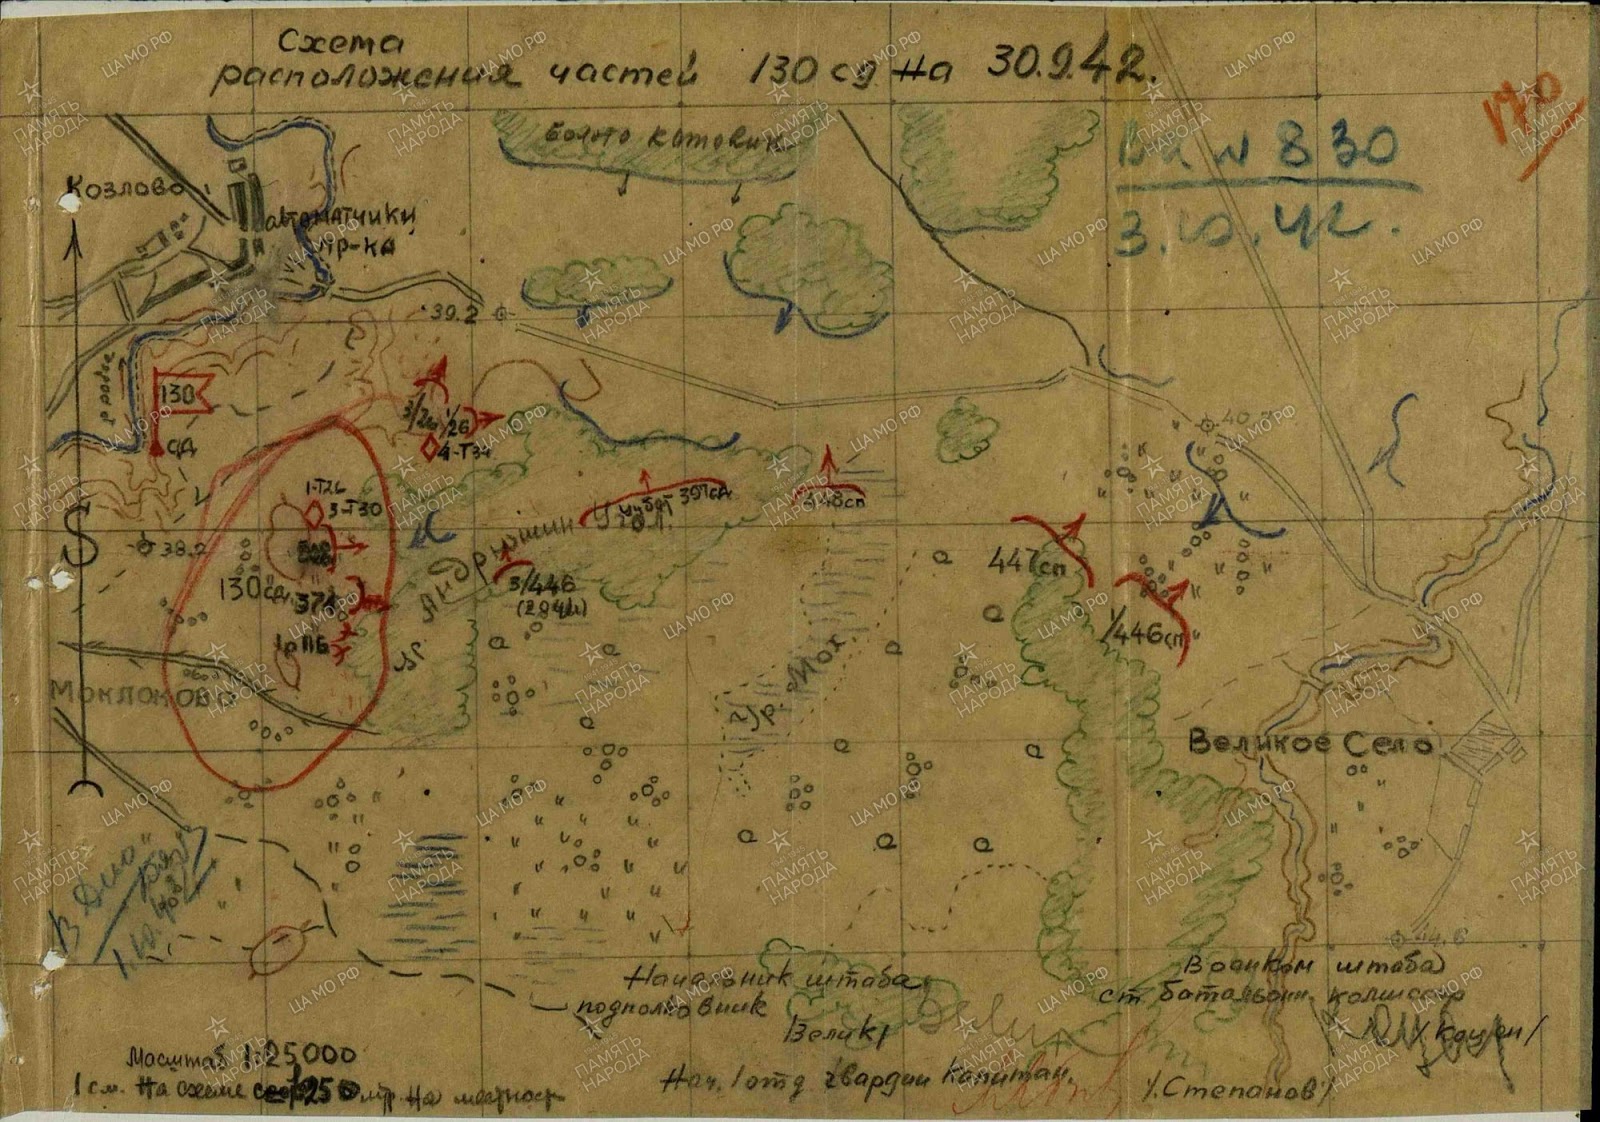 Схема
расположения частей 130 сд на 30.9.42.
170
Вх № 830
3.10.42.
болото Котовик
Козлово
автоматчики
пр-ка
39.2
130
сд
3/26 1/26
4-Т34
1-Т26
3-Т30
38.2
130 сд
371
Моклоково
ур. Андрюшин Угол
391 сд
3/446
448сп
447сп
1/446сп
40
ур. Мох
Великое Село
44.6
В Дело
1.10.
Начальник штаба
подполковник
Велик/
Военком штаба
ст. батальон. комиссар
/Кацен/
Нач. 1 отд. гвардии Капитан
/Степанов/
Масштаб 1:25000
1 см. на схеме 250 мтр на местност
ЦАМО РФ
ПАМЯТЬ
НАРОДА